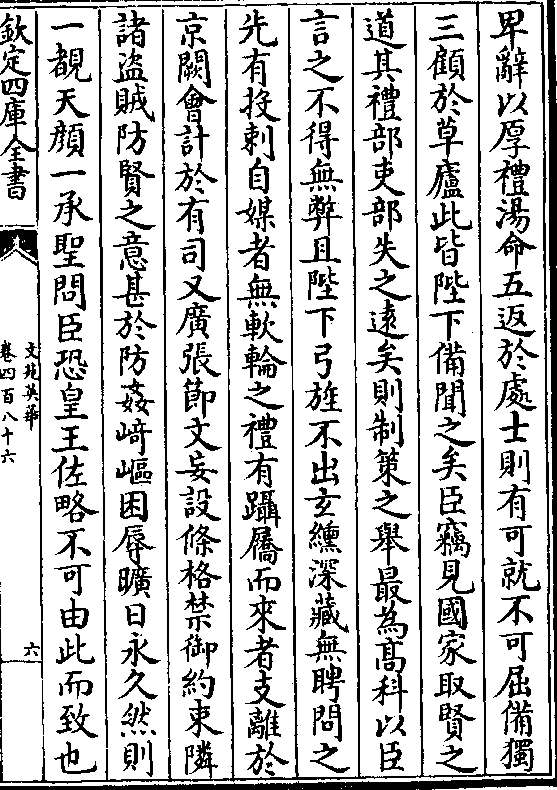 卑辭以厚禮湯命五返於處士則有可就不可屈備獨
三顧於草廬此皆陛下備聞之矣臣竊見國家取賢之
道其禮部吏部失之逺矣則制策之舉最為髙科以臣
言之不得無弊且陛下弓旌不出玄纁深藏無聘問之
先有投刺自媒者無軟輪之禮有躡屩而來者支離於
京闕會計於有司又廣張節文妄設條格禁御約束隣
諸盗賊防賢之意甚於防姦﨑嶇困辱曠日永久然則
一覩天顔一承聖問臣恐皇王佐略不可由此而致也
欽定四庫全書
文苑英華
卷四百八十六
六